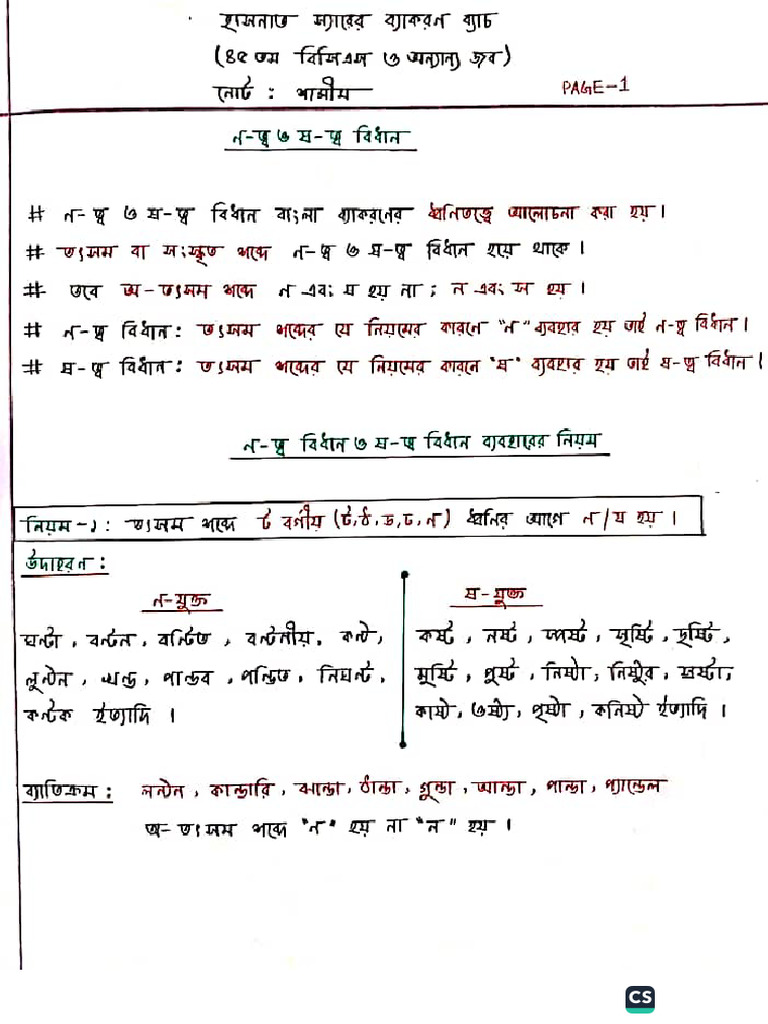 হাসনাত স্যারের ব্যাকরণ ব্যাচ
(৪৫ তম বিসিএস ও অন্যান্য জব)
নোট : শামীম
PAGE-1
ণ-ত্ব ও ষ-ত্ব বিধান
# ণ-ত্ব ও ষ-ত্ব বিধান বাংলা ব্যাকরণের ধ্বনিতত্ত্বে আলোচনা করা হয়।
# তৎসম বা সংস্কৃত শব্দে ণ-ত্ব ও ষ-ত্ব বিধান হয়ে থাকে।
# তবে অ-তৎসম শব্দে ণ এবং ষ হয় না ; ন এবং স হয় ।
# ণ-ত্ব বিধান : তৎসম শব্দের যে নিয়মের কারণে "ণ" ব্যবহার হয় তাই ণ-ত্ব বিধান।
# ষ-ত্ব বিধান : তৎসম শব্দের যে নিয়মের কারণে "ষ" ব্যবহার হয় তাই ষ-ত্ব বিধান।
ণ-ত্ব বিধান ও ষ-ত্ব বিধান ব্যবহারের নিয়ম
নিয়ম -১ : তৎসম শব্দে ট বর্গীয় (ট,ঠ,ড,ঢ,ণ) ধ্বনির আগে ণ/ষ হয় ।
উদাহরণ :
ণ-যুক্ত
ঘণ্টা , বণ্টন , বণ্টিত , বণ্টনীয়, কণ্ঠ,
লুণ্ঠন , খণ্ড , পাণ্ডব , পণ্ডিত , নির্ঘণ্ট,
কণ্টক ইত্যাদি ।
ষ-যুক্ত
কষ্ট , নষ্ট , স্পষ্ট , সৃষ্টি, দৃষ্টি,
মুষ্টি , পুষ্ট , নিষ্ঠা, নিষ্ঠুর , স্রষ্টা,
কাষ্ঠ, ওষ্ঠ্য, পৃষ্ঠা , কনিষ্ঠ ইত্যাদি ।
ব্যতিক্রম : লন্ঠন , কান্ডারি , ঝান্ডা, ঠান্ডা, গুন্ডা, আন্ডা, পান্ডা, প্যান্ডেল
অ- তৎসম শব্দে "ণ" হয় না "ন" হয় ।
CS